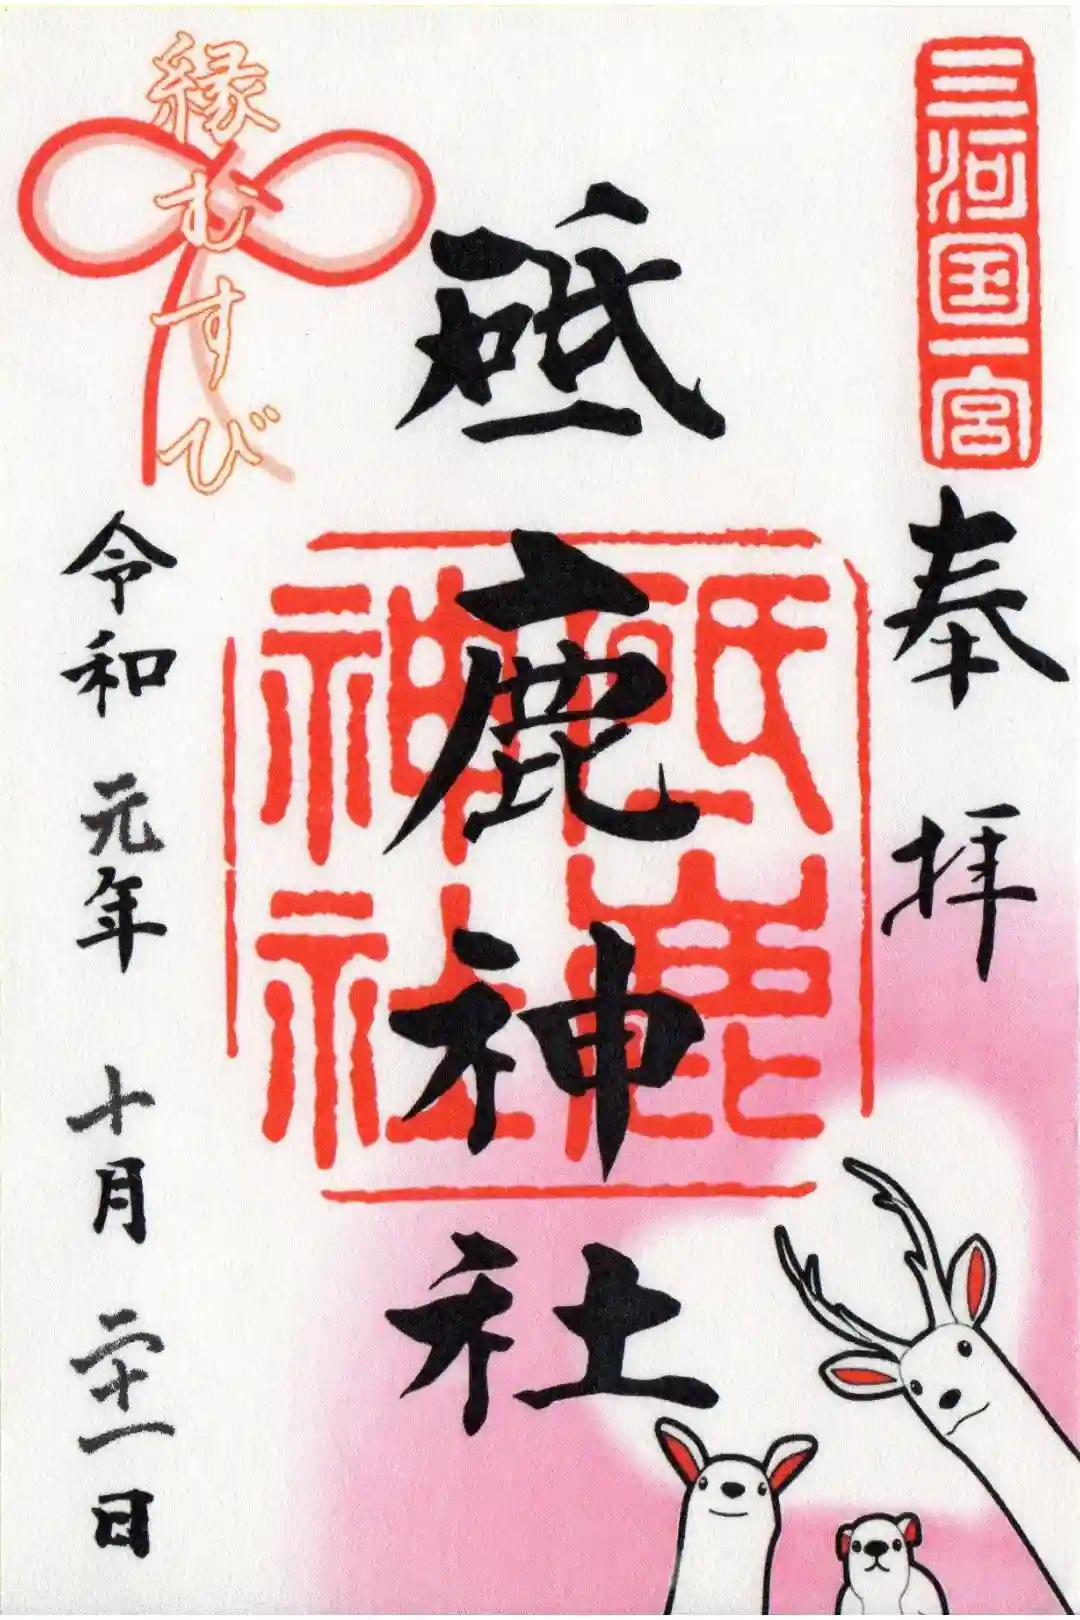 三河国一宮
奉拝
砥鹿神社
砥鹿
神社
縁むすび
令和元年十月二十一日